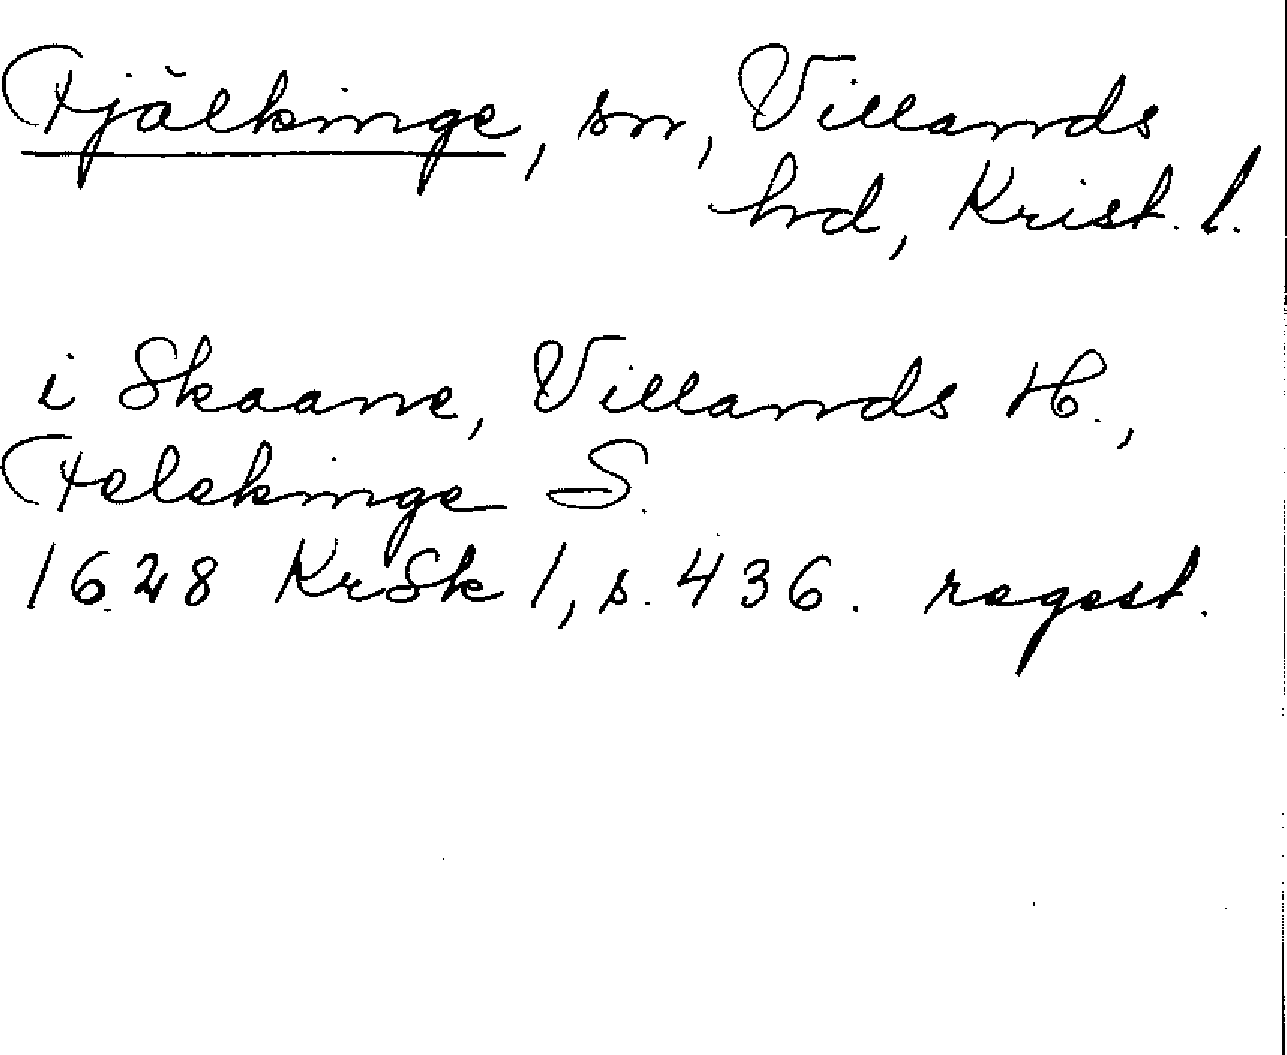 Fjälkinge, sn, Villands
hd, Krist. l.
i Skaane, Villands H.,
Felekinge S.
1628 KrSk 1, s. 436. regest.